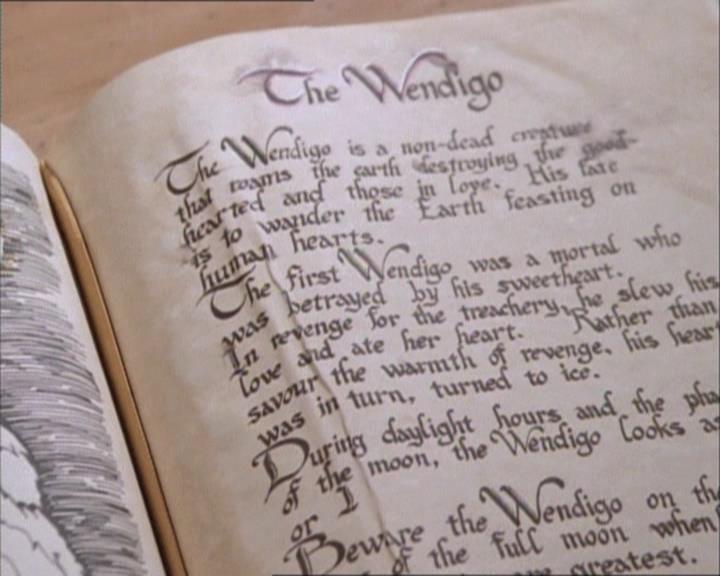 The Wendigo
The Wendigo is a non-dead creature
that roams the earth destroying the good-
hearted and those in love. His fate
is to wander the Earth feasting on
human hearts.
The first Wendigo was a mortal who
was betrayed by his sweetheart.
In revenge for the treachery, he slew his
love and ate her heart. Rather than
savour the warmth of revenge, his hear
was in turn, turned to ice.
During daylight hours and the pha
of the moon, the Wendigo looks as
I
or
Beware the Wendigo on th
of the full moon when
greatest.